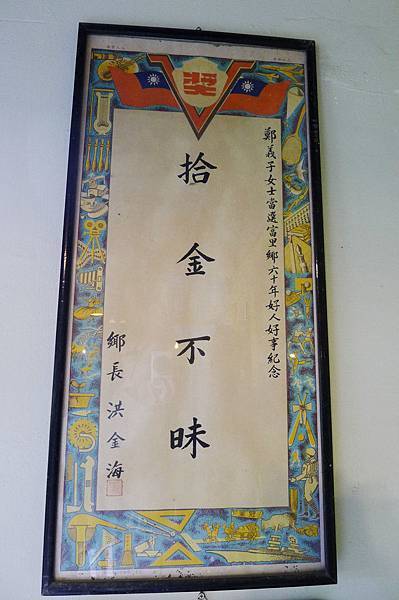 獎
鄭義子女士當選富里鄉六十年好人好事紀念
拾金不昧
鄉長洪金海